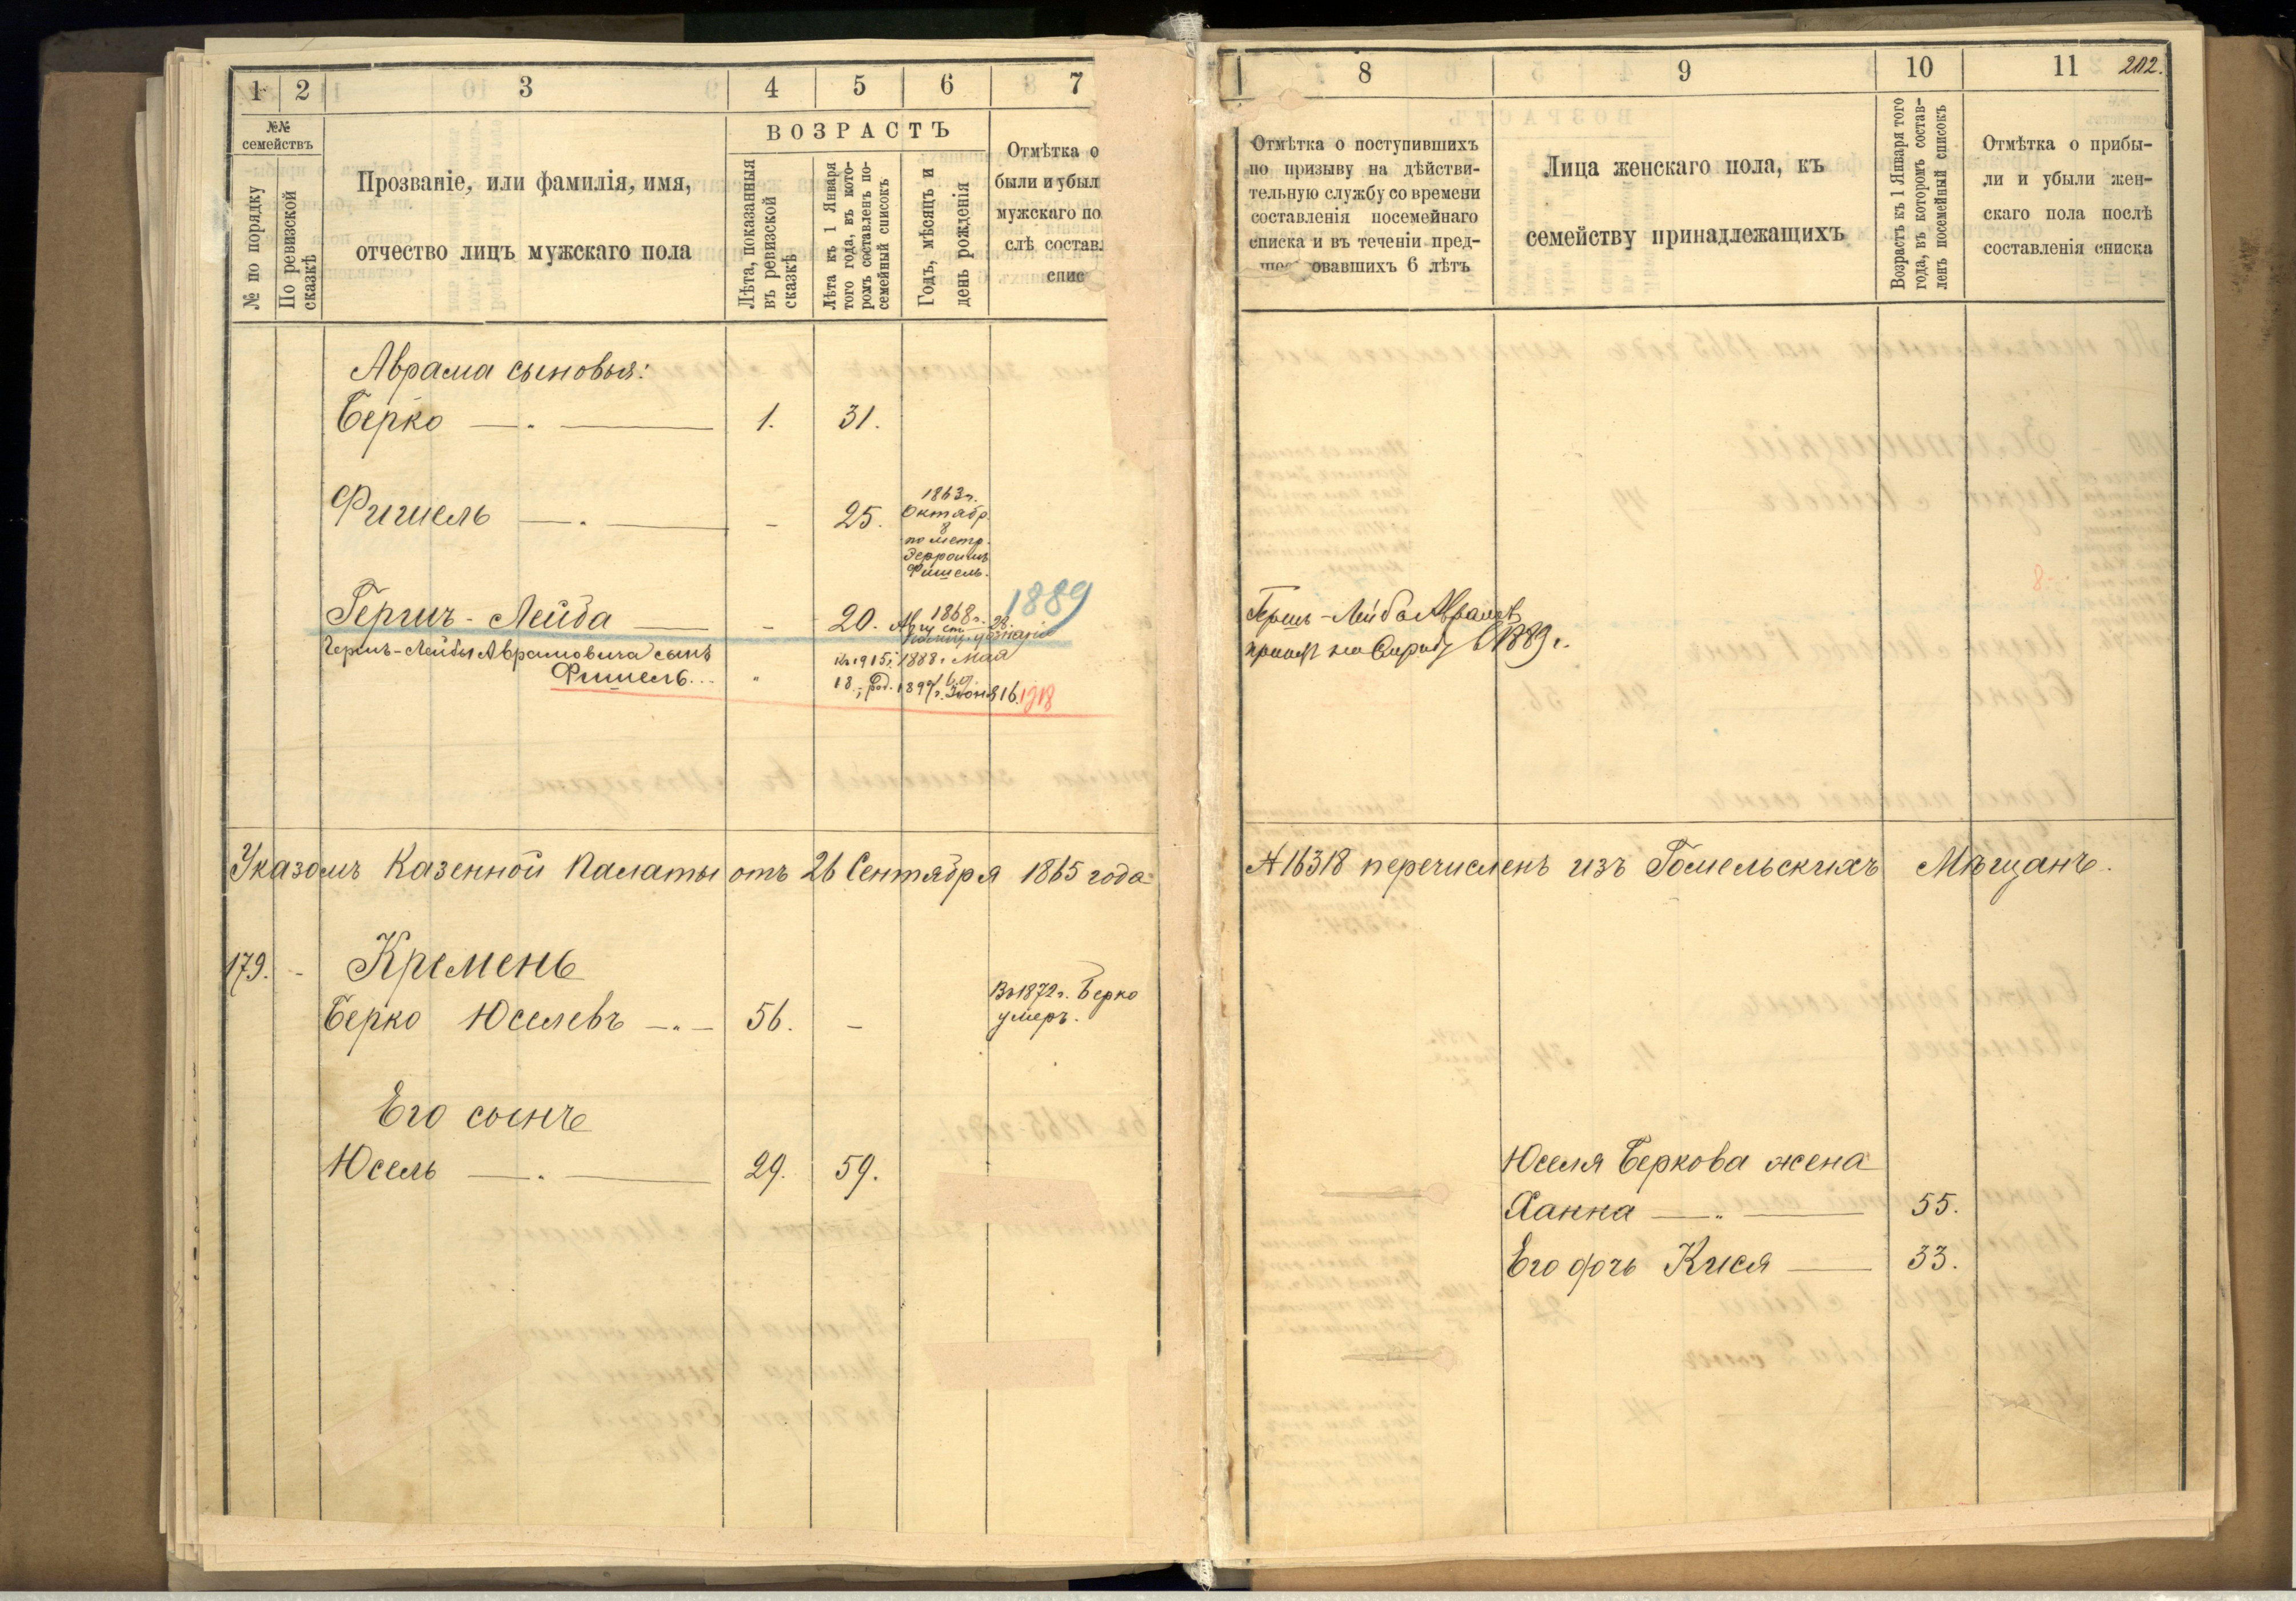 1 2 3 4 5 6 7
№№ семействъ
№ по порядку
По ревизской сказкѣ
Прозваніе, или фамилія, имя,
отчество лицъ мужскаго пола
ВОЗРАСТЪ
Лѣта, показанныя
въ ревизской
сказкѣ
Лѣта къ 1 Января
того года, въ кото-
ромъ составленъ по-
семейный списокъ
Годъ, мѣсяцъ и
день рожденія
Отмѣтка о
были и убыл
мужскаго по
слѣ составл
спис
Аврама сыновья:
Берко 1. 31.
Фишель - 25.
1863 г.
Октябр.
8
по метр.
Фишель.
Гершъ-Лейба - 20.
1868 г.
1889
Гершъ-Лейбы Аврамовича сынъ
Фишель... "
къ 1915 г.
18,
1888 г. Мая
род. 1897 г. Іюня 16.
1918
Указомъ Казенной Палаты отъ 26 Сентября 1865 года
179. - Кремень
Берко Юселевъ 56. -
Въ 1872 г. Берко
умеръ.
Его сынъ
Юсель 29. 59.
8 9 10 11 202.
Отмѣтка о поступившихъ
по призыву на дѣйстви-
тельную службу со времени
составленія посемейнаго
списка и въ теченіи пред-
шествовавшихъ 6 лѣтъ
Лица женскаго пола, къ
семейству принадлежащихъ
Возрастъ къ 1 Января того
года, въ которомъ состав-
ленъ посемейный списокъ
Отмѣтка о прибы-
ли и убыли жен-
скаго пола послѣ
составленія списка
Гершъ-Лейба Аврамов
принят на службу в 1889 г.
№ 16318 перечисленъ изъ Гомельскихъ Мѣщанъ.
Юселя Беркова жена
Ханна 55.
Его дочь Кися 33.